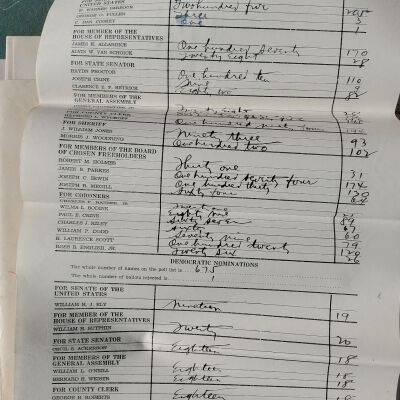 UNITED STATES
W. WARREN BARBOUR Two hundred five 205
GEORGE O. PULLEN 3
C. DAN COSKEY 1
FOR MEMBER OF THE
HOUSE OF REPRESENTATIVES
JAMES K. ALLARDICE One hundred Seventy 170
ALVIN W. VAN SCHOICK Twenty Eight 28
FOR STATE SENATOR
HAYDN PROCTOR One hundred ten 110
JOSEPH CRINE Nine 9
CLARENCE E. F. HETRICK Eighty two 82
FOR MEMBERS OF THE
GENERAL ASSEMBLY
FOR COUNTY CLERK
FOR SHERIFF
J. WILLIAM JONES Ninety three 93
MORRIS J. WOODRING One hundred two 102
FOR MEMBERS OF THE BOARD
OF CHOSEN FREEHOLDERS
ROBERT M. HOLMES Thirty one 31
JAMES S. PARKES One hundred Seventy four 174
JOSEPH C. IRWIN One hundred thirty 130
JOSEPH R. MEGILL Sixty four 64
FOR CORONERS
WILMA L. BODINE
PAUL E. CRINE Eighty nine 89
CHARLES J. RILEY Sixty Seven 67
WILLIAM P. DODD Sixty 60
H. LAURENCE SCOTT Seventy nine 79
ROSS B. ENGLISH, JR. One hundred twenty
Twenty Six 26
DEMOCRATIC NOMINATIONS
The whole number of names on the poll list is 675
The whole number of ballots rejected is 1
FOR SENATE OF THE
UNITED STATES
WILLIAM H. J. ELY Nineteen 19
FOR MEMBER OF THE
HOUSE OF REPRESENTATIVES
WILLIAM H. SUTPHIN Twenty 20
FOR STATE SENATOR
CECIL S. ACKERSON Eighteen 18
FOR MEMBERS OF THE
GENERAL ASSEMBLY
WILLIAM L. O'NEILL Eighteen 18
BERNARD R. WEISER Eighteen 18
FOR COUNTY CLERK
GEORGE H. ROBERTS Eighteen 18